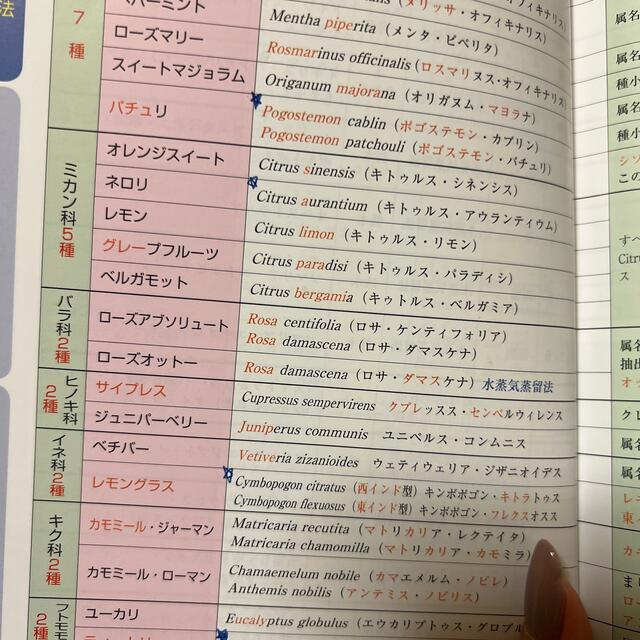 法
7
種
ペパーミント
Mentha piperita (メンタ・ピペリタ)
ローズマリー
Rosmarinus officinalis (ロスマリヌス・オフィキナリス)
スイートマジョラム
Origanum majorana (オリガヌム・マヨラナ)
パチュリ
Pogostemon cablin (ポゴステモン・カブリン)
Pogostemon patchouli (ポゴステモン・パチュリ)
ミカン科5種
オレンジスイート
Citrus sinensis (キトゥルス・シネンシス)
ネロリ
Citrus aurantium (キトゥルス・アウランティウム)
レモン
Citrus limon (キトゥルス・リモン)
グレープフルーツ
Citrus paradisi (キトゥルス・パラディシ)
ベルガモット
Citrus bergamia (キゥトルス・ベルガミア)
バラ科2種
ローズアブソリュート
Rosa centifolia (ロサ・ケンティフォリア)
Rosa damascena (ロサ・ダマスケナ)
ローズオットー
Rosa damascena (ロサ・ダマスケナ) 水蒸気蒸留法
ヒノキ科2種
サイプレス
Cupressus sempervirens クプレッスス・センペルウィレンス
ジュニパーベリー
Juniperus communis ユニペルス・コンムニス
イネ科2種
ベチバー
Vetiveria zizanioides ウェティウェリア・ジザニオイデス
レモングラス
Cymbopogon citratus (西インド型) キンボポゴン・キトラトゥス
Cymbopogon flexuosus (東インド型) キンボポゴン・フレクスオスス
キク科2種
カモミール・ジャーマン
Matricaria recutita (マトリカリア・レクテイタ)
Matricaria chamomilla (マトリカリア・カモミラ)
カモミール・ローマン
Chamaemelum nobile (カマエメルム・ノビレ)
Anthemis nobilis (アンテミス・ノビリス)
フトモモ
2種
ユーカリ
Eucalyptus globulus (エウカリプトゥス・グロブル
属名
属名
種小
属名
種小
この
すべ
Citru
ス
属名
抽出
属名
属名